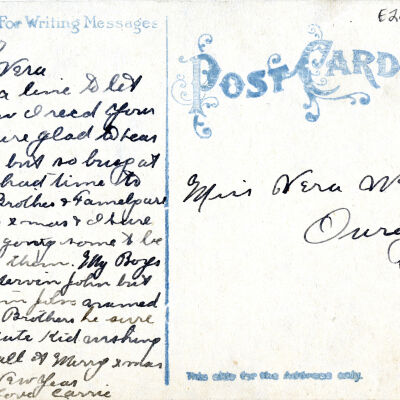 For Writing Messages
Vera
a line to let
I recd your
ure glad to hear
but so busy at
had time to
Brother & Famely are
xmas & I sure
going some to be
them. My Boys
John but
John named
Brothers he sure
cute Kid wishing
all A Merry xmas
New Year
Love Carrie
POST CARD
Miss Vera W
Oura
This side for the Address only.